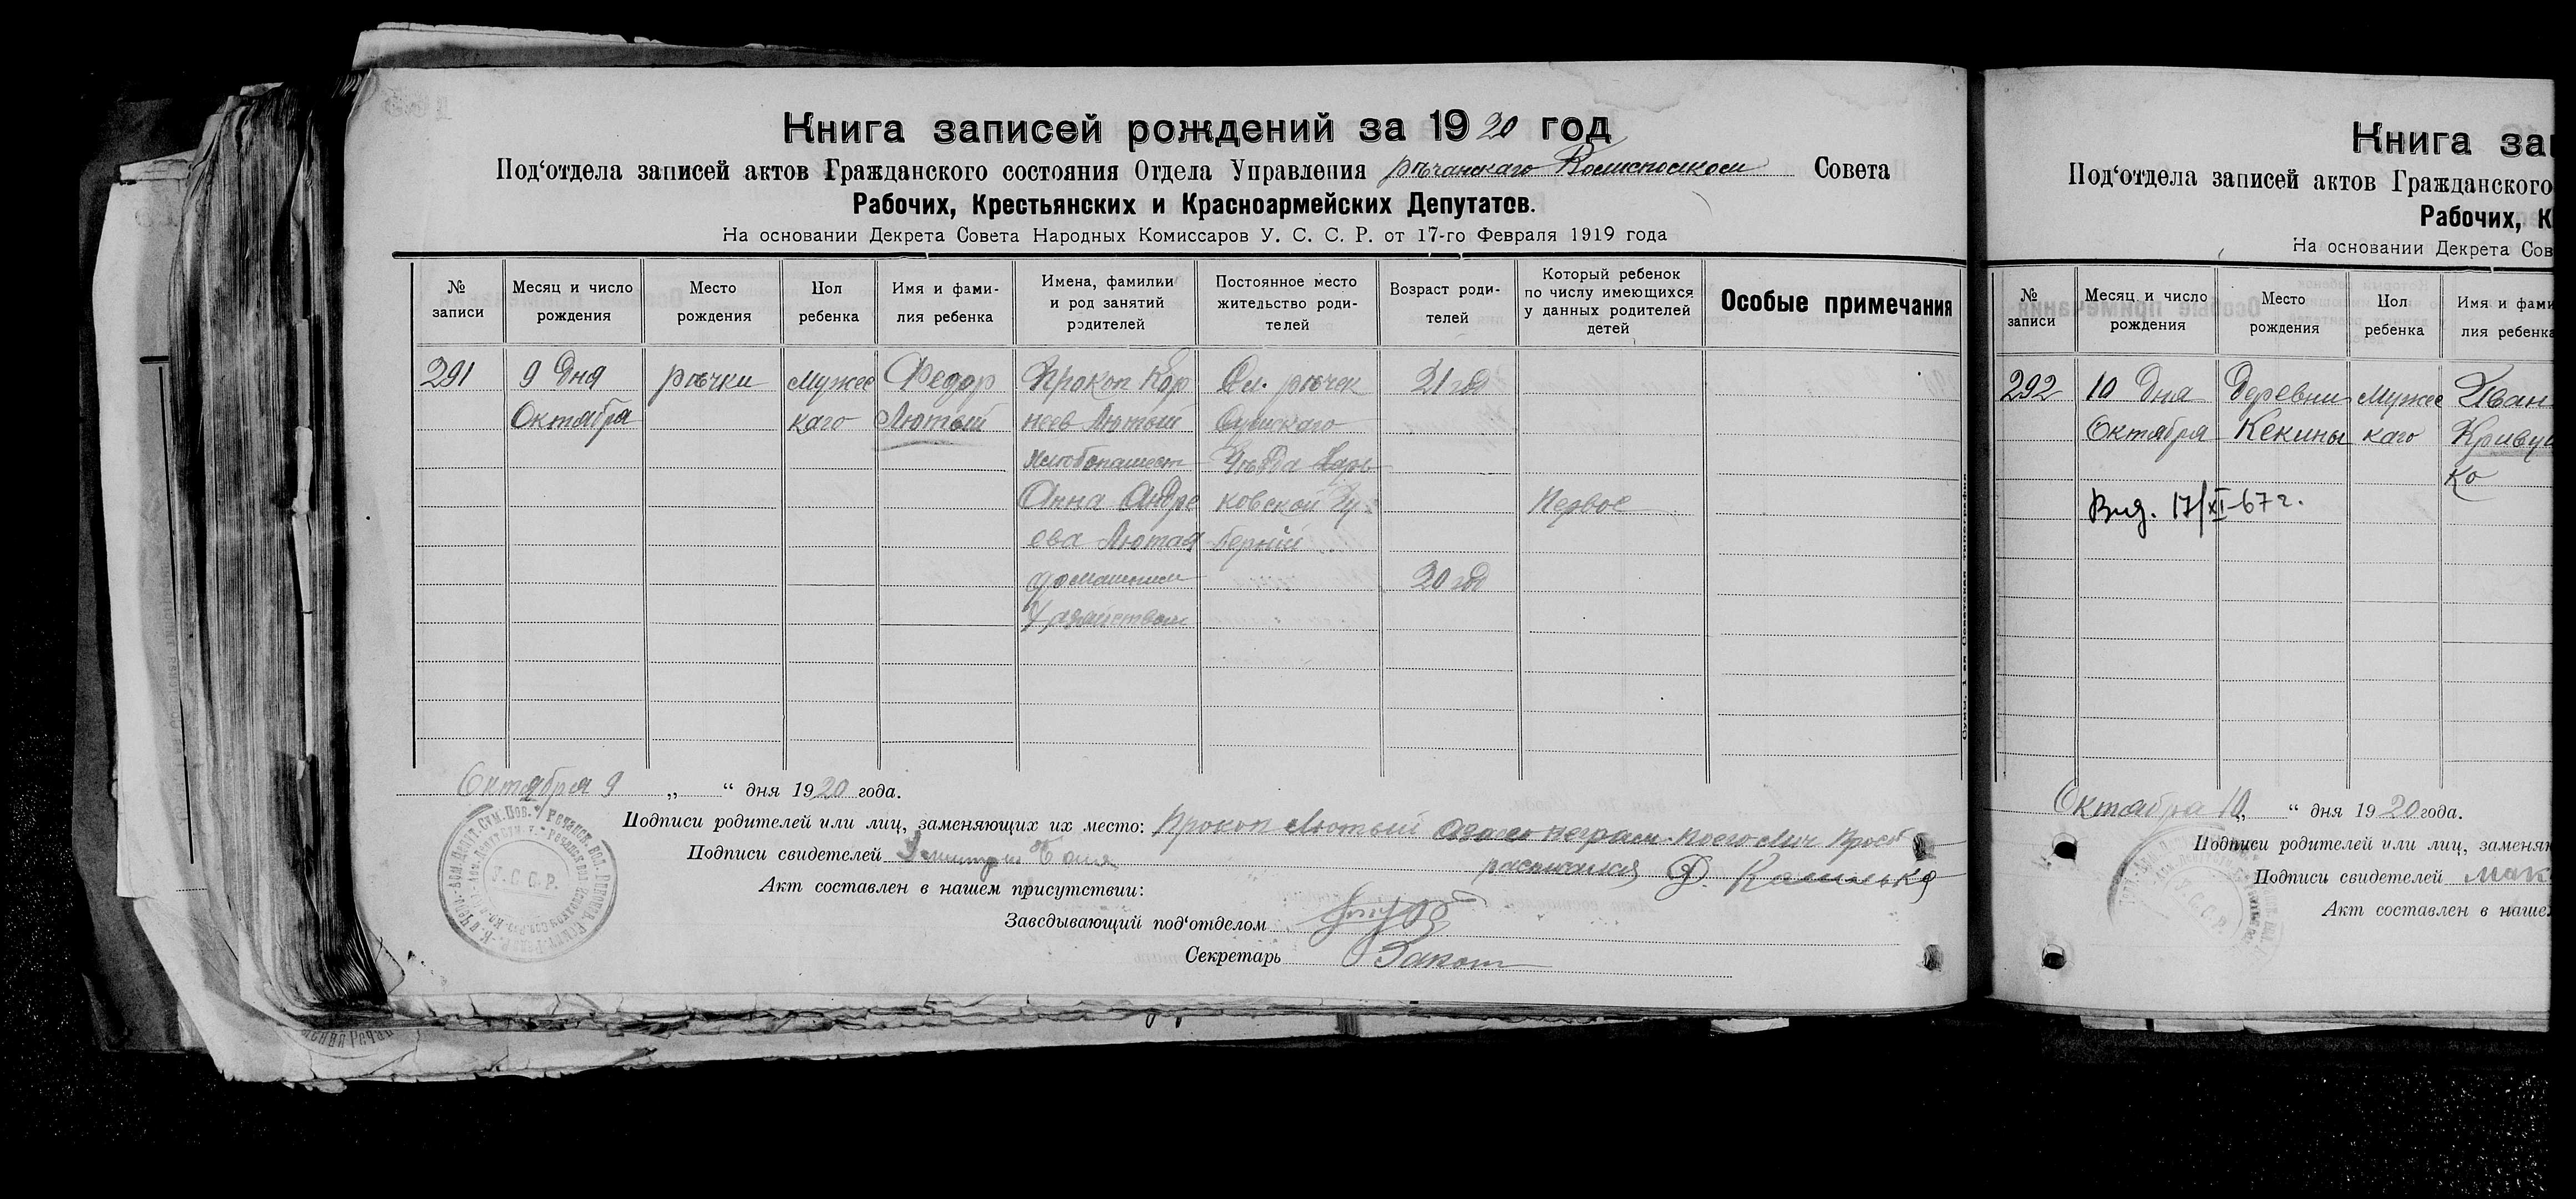 Книга записей рождений за 1920 год
Под‘отдела записей актов Гражданского состояния Отдела Управления рѣчанскаго Совета
Рабочих, Крестьянских и Красноармейских Депутатов.
На основании Декрета Совета Народных Комиссаров У. С. С. Р. от 17-го Февраля 1919 года
№ записи
Месяц и число рождения
Место рождения
Пол ребенка
Имя и фами-
лия ребенка
Имена, фамилии
и род занятий
родителей
Постоянное место
жительство роди-
телей
Возраст роди-
телей
Который ребенок
по числу имеющихся
у данных родителей
детей
Особые примечания
291
9 дня
Октября
рѣчки
Мужес
каго
Федор
Лютый
Прокоп Кор
неев Лютый
хлебопашест
Анна Андре
ева Лютая
домашним
Хазайством
Сл. рѣчек
Сумскаго
Уѣзда Харь
ковской Гу-
бернии
21 год
20 год
Первое
Октября 9 „ “ дня 1920 года.
Подписи родителей или лиц, заменяющих их место: Прокоп Лютый
Подписи свидетелей
расписался
Акт составлен в нашем присутствии:
Заведывающий под‘отделом
Секретарь
У.С.С.Р.
Книга за
Под‘отдела записей актов Гражданского
Рабочих, К
На основании Декрета Сов
№ записи
Месяц и число рождения
Место рождения
Пол ребенка
Имя и фами
лия ребенка
292
10 дня
Октября
Деревни
Кекины
Мужес
каго
Иван
Кривуш
ко
Выд. 17/XI-67 г.
Октября 10 „ “ дня 1920 года.
Подписи родителей или лиц, заменя
Подписи свидетелей
Акт составлен в наше
У.С.С.Р.